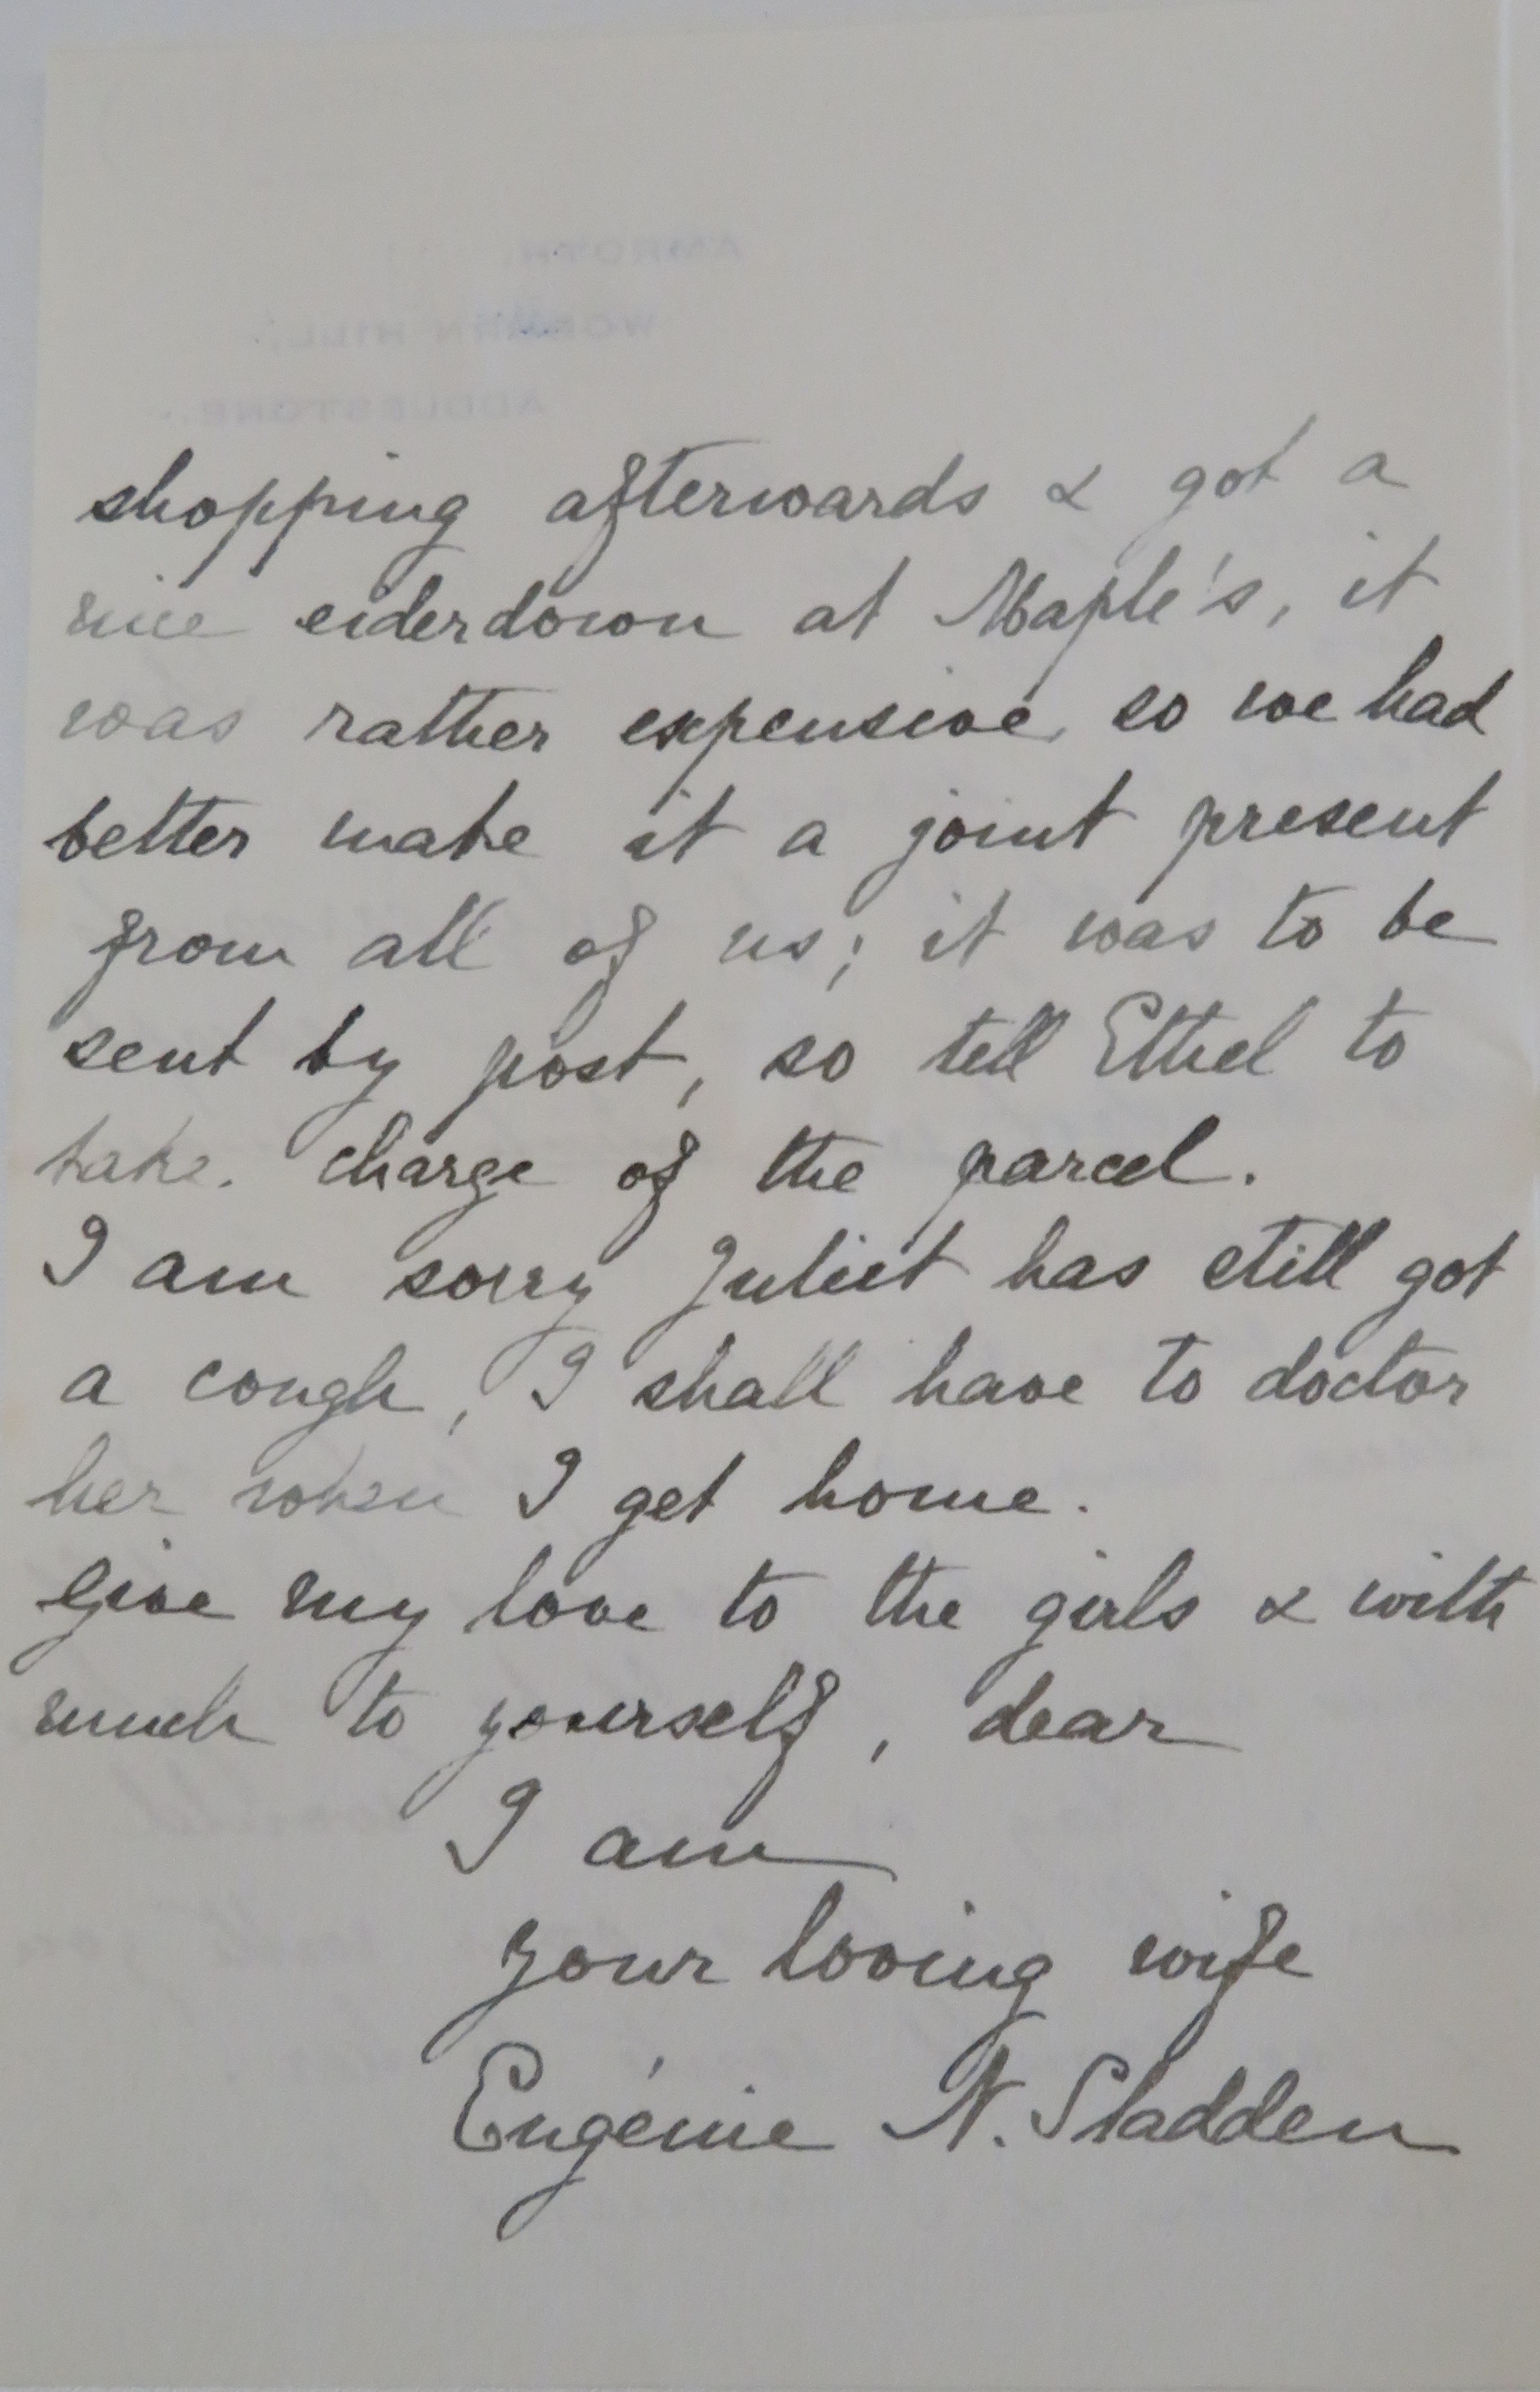 AMROTH,
WOBURN HILL,
ADDLESTONE.
shopping afterwards & got a
nice eiderdown at Maple's, it
was rather expensive, so we had
better make it a joint present
from all of us; it was to be
sent by post, so tell Ethel to
take. charge of the parcel.
I am sorry Juliet has still got
a cough, I shall have to doctor
her when I get home.
Give my love to the girls & with
much to yourself, dear
I am
your loving wife
Eugénie N. Sladden